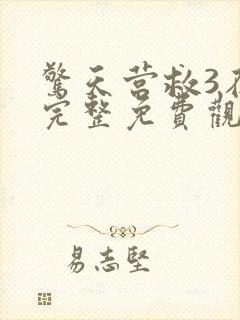 驚天营救3
完整免費觀
易志堅